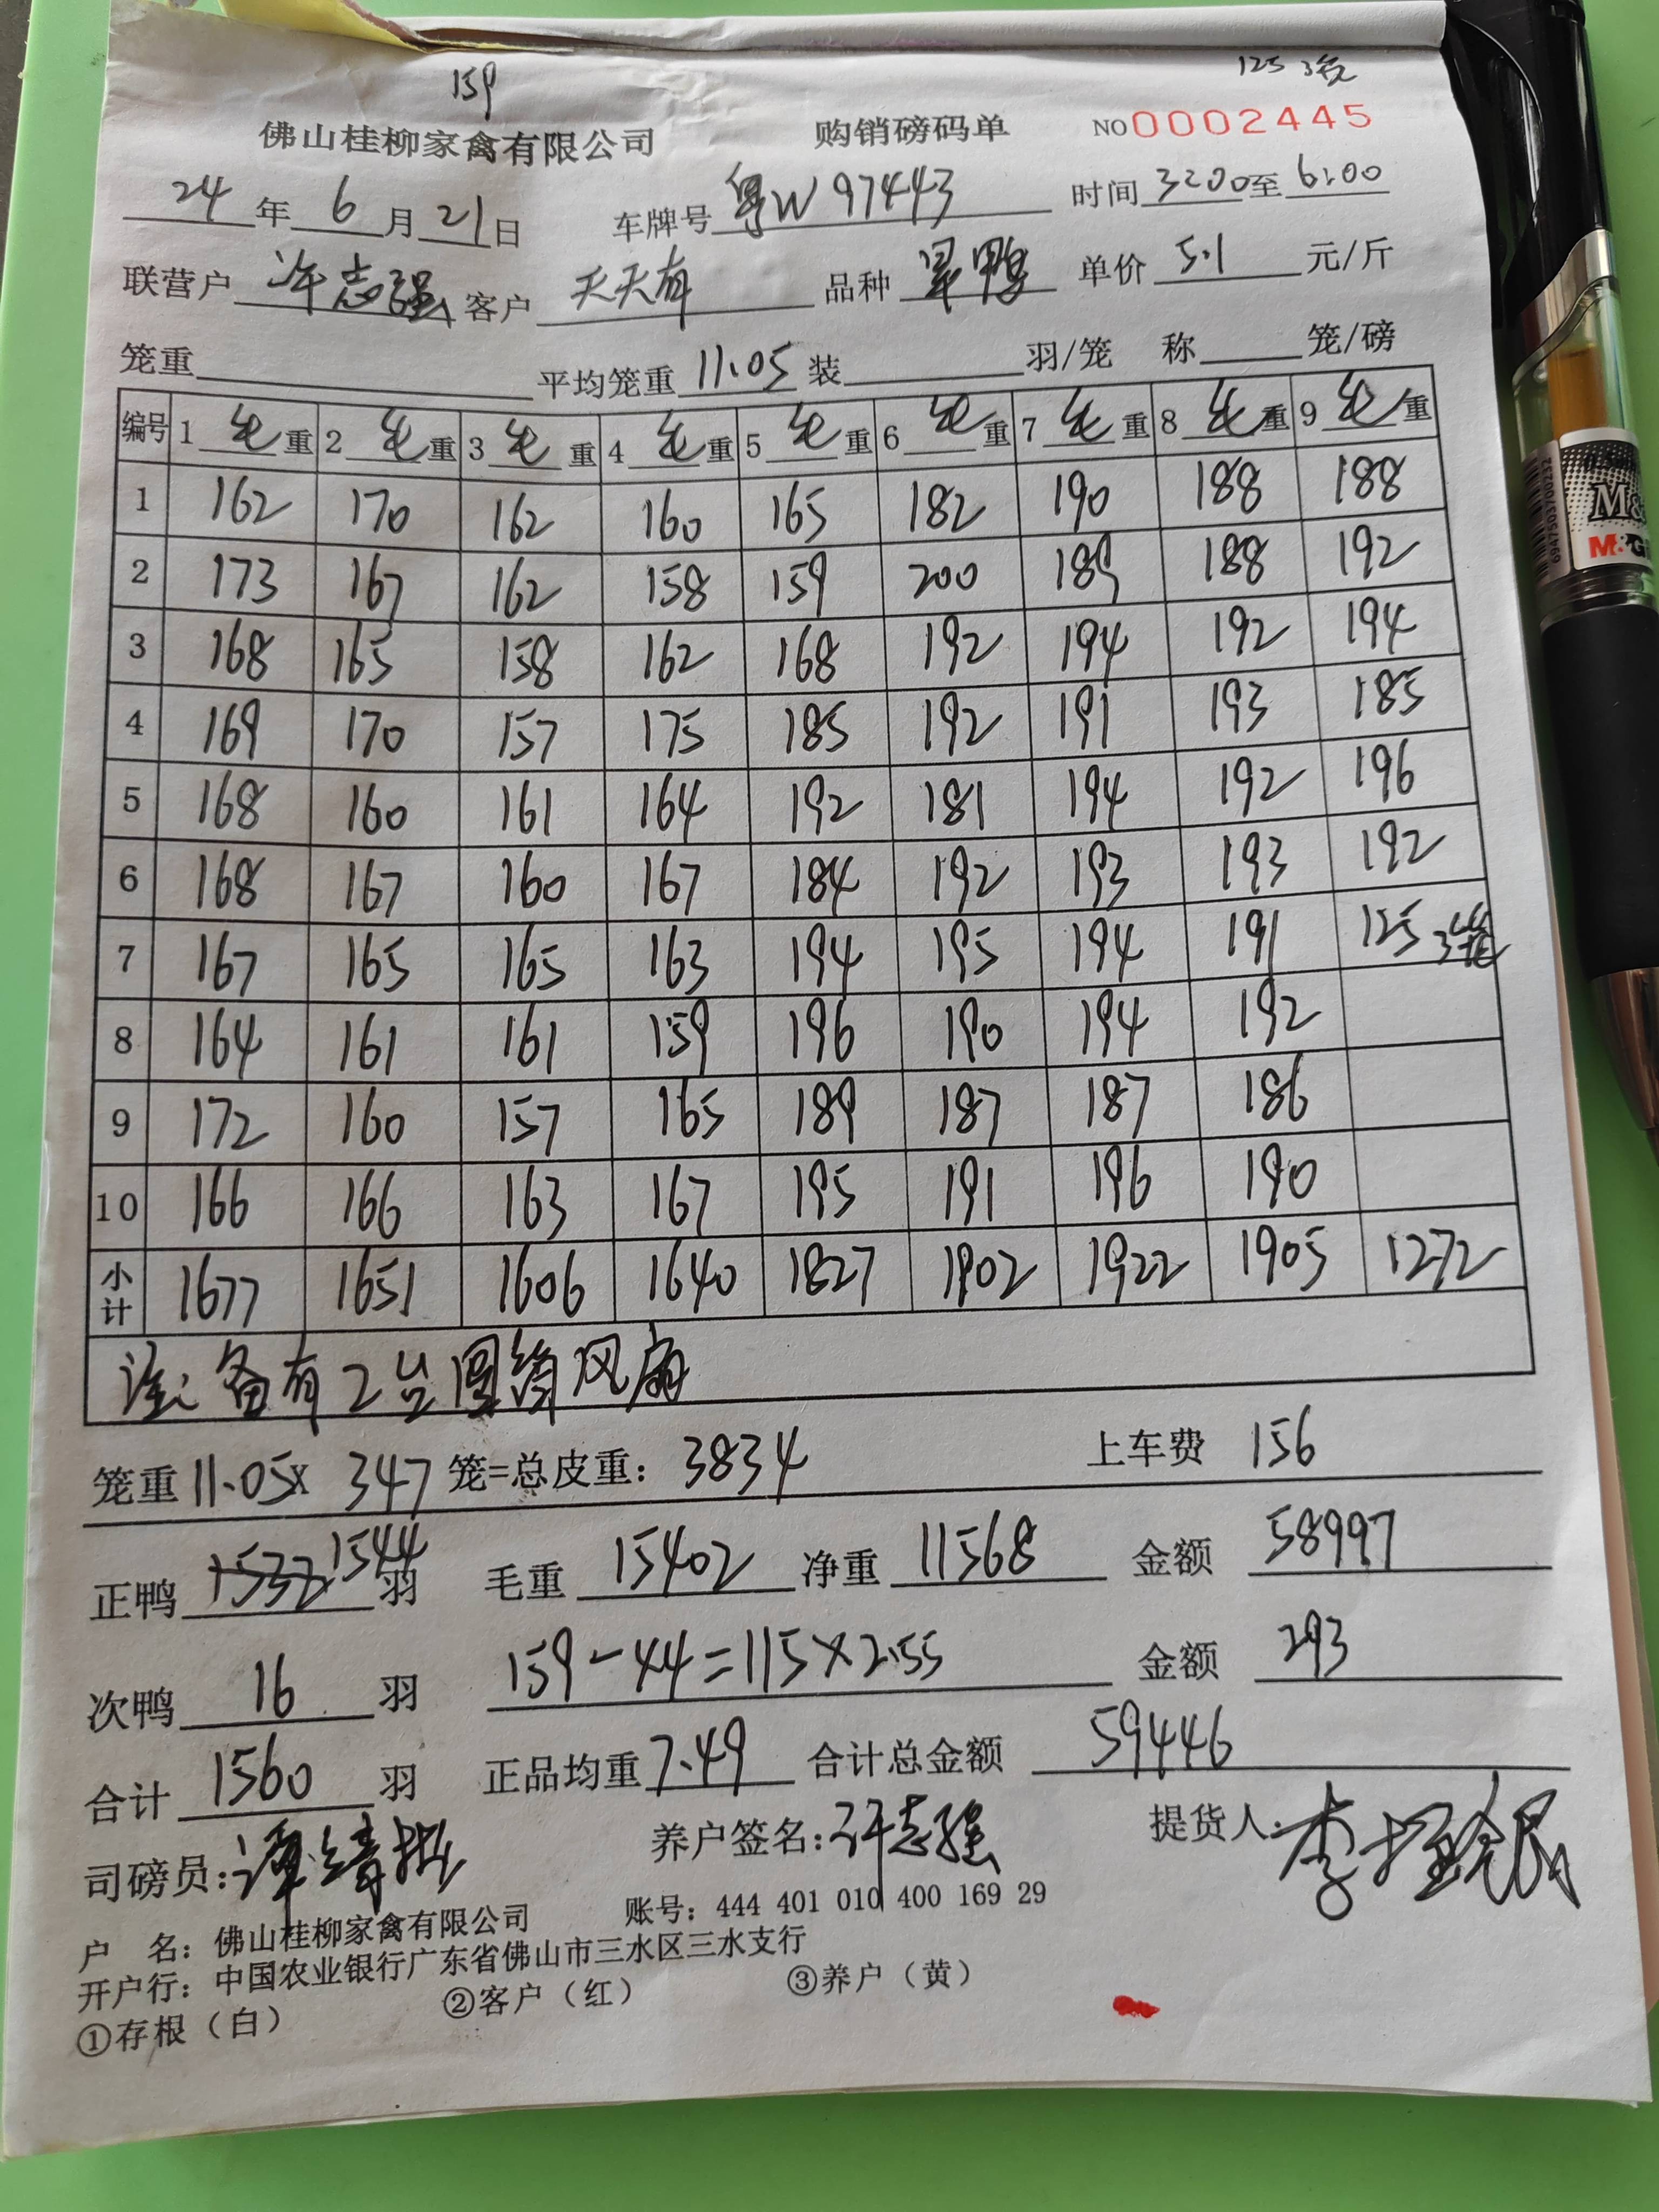 159
125 3笼
佛山桂柳家禽有限公司 购销磅码单 NO0002445
24年6月21日 车牌号 粤W97443 时间 3:00至6:00
联营户 许志强 客户 天天有 品种 旱鸭 单价 5.1 元/斤
笼重 平均笼重 11.05 装 羽/笼 称 笼/磅
编号 1 毛重 2 毛重 3 毛重 4 毛重 5 毛重 6 毛重 7 毛重 8 毛重 9 毛重
1 162 170 162 160 165 182 190 188 188
2 173 167 162 158 159 200 189 188 192
3 168 165 158 162 168 192 194 192 194
4 169 170 157 175 185 192 191 193 185
5 168 160 161 164 192 181 194 192 196
6 168 167 160 167 184 192 193 193 192
7 167 165 165 163 194 195 194 191 125 3笼
8 164 161 161 159 196 190 194 192
9 172 160 157 165 189 187 187 186
10 166 166 163 167 195 191 196 190
小计 1677 1651 1606 1640 1827 1902 1922 1905 1272
注: 备有2台圆筒风扇
笼重 11.05x 347 笼=总皮重: 3834 上车费 156
正鸭 1532 1544 羽 毛重 15402 净重 11568 金额 58997
次鸭 16 羽 159-44=115×2.55 金额 293
合计 1560 羽 正品均重 7.49 合计总金额 59446
司磅员: 谭靖 养户签名: 许志强 提货人: 李
户 名: 佛山桂柳家禽有限公司 账号: 444 401 010 400 169 29
开户行: 中国农业银行广东省佛山市三水区三水支行
①存根（白） ②客户（红） ③养户（黄）
M&G
6947503700232